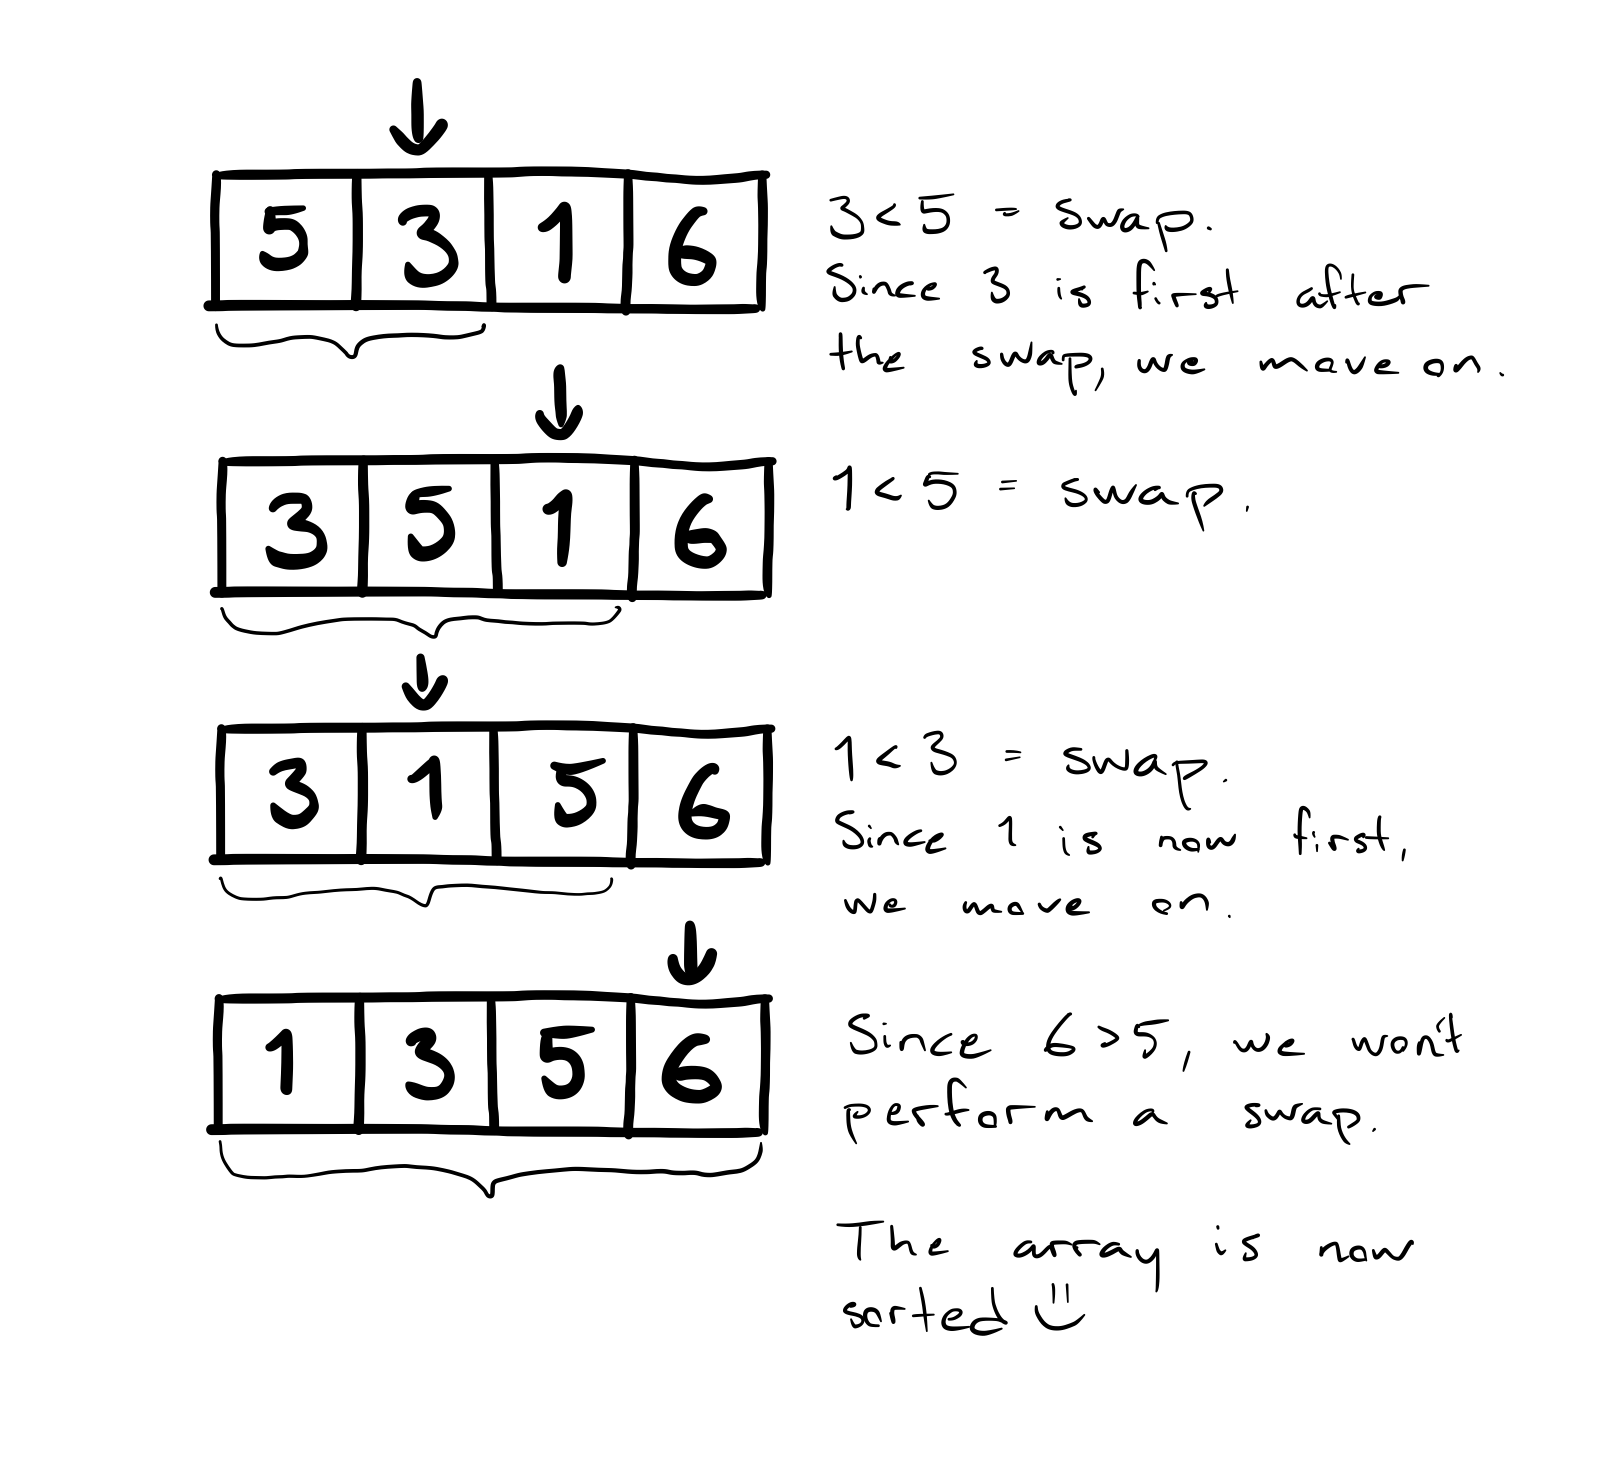 5 3 1 6
3 < 5 = swap.
Since 3 is first after
the swap, we move on.
3 5 1 6
1 < 5 = swap.
3 1 5 6
1 < 3 = swap.
Since 1 is now first,
we move on.
1 3 5 6
Since 6 > 5, we won't
perform a swap.
The array is now
sorted